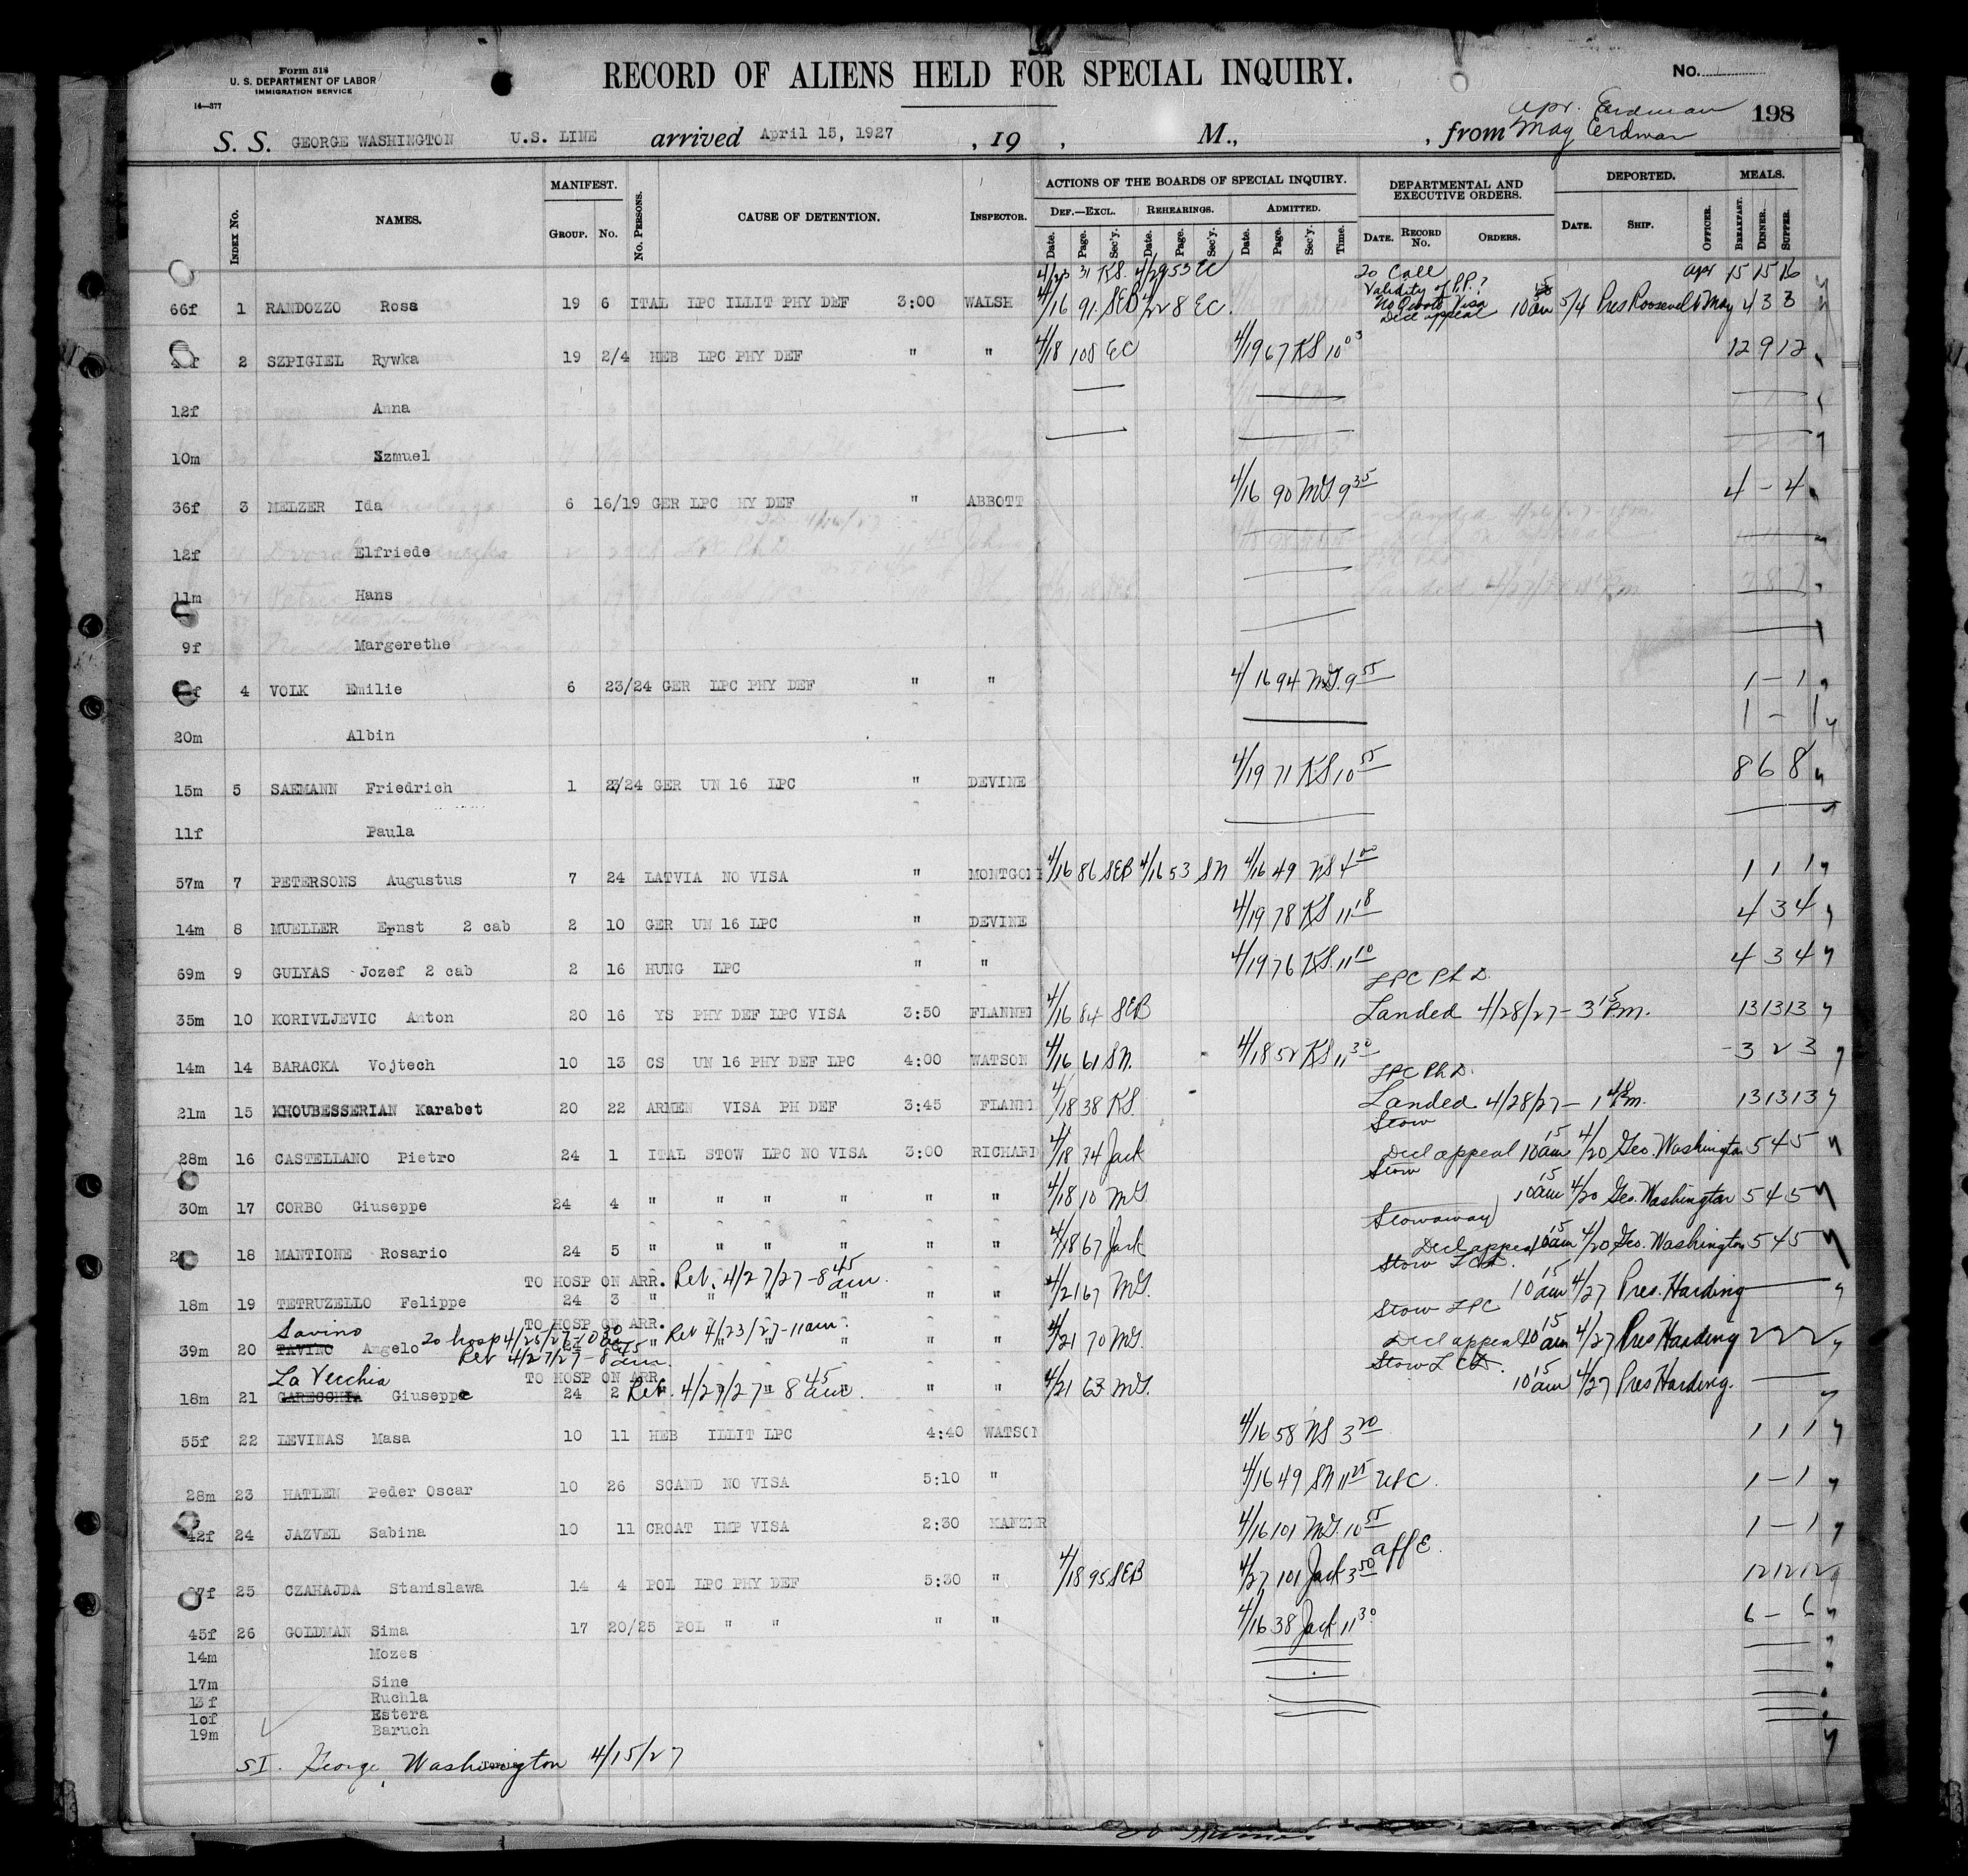 Form 518
U. S. DEPARTMENT OF LABOR
IMMIGRATION SERVICE
14—377
RECORD OF ALIENS HELD FOR SPECIAL INQUIRY.
No.
198
Apr. Erdman
S. S. GEORGE WASHINGTON U.S. LINE arrived April 15, 1927 , 19 , M., , from May Erdman
INDEX No. NAMES. MANIFEST. GROUP. No. No. PERSONS. CAUSE OF DETENTION. INSPECTOR. ACTIONS OF THE BOARDS OF SPECIAL INQUIRY. DEF.—EXCL. REHEARINGS. ADMITTED. DEPARTMENTAL AND EXECUTIVE ORDERS. DEPORTED. MEALS.
Date. Page. Sec'y. Date. Page. Sec'y. Date. Page. Sec'y. Time. DATE. RECORD No. ORDERS. DATE. SHIP. OFFICER. BREAKFAST. DINNER. SUPPER.
4/23 31 KS. 4/29 53 EC Apr 15 15 16
Validity of P.P.?
66f 1 RANDOZZO Rosa 19 6 ITAL LPC ILLIT PHY DEF 3:00 WALSH 4/16 91 SEB 4/22 8 EC. No Quota Visa 10 am 5/4 Pres Roosevelt May 4 3 3
Decl appeal
2 SZPIGIEL Rywka 19 2/4 HEB LPC PHY DEF " " 4/18 108 EC 4/19 67 KS 10 03 12 9 12
12f Anna
10m Szmuel
36f 3 MELZER Ida 6 16/19 GER LPC HY DEF " ABBOTT 4/16 90 MG. 9 35 4 - 4
12f Elfriede
11m Hans
9f Margerethe
4 VOLK Emilie 6 23/24 GER LPC PHY DEF " " 4/16 94 MG. 9 55 1 - 1
20m Albin 1 - 1
15m 5 SAEMANN Friedrich 1 23/24 GER UN 16 LPC " DEVINE 4/19 71 KS 10 55 8 6 8
11f Paula
57m 7 PETERSONS Augustus 7 24 LATVIA NO VISA " MONTGOM 4/16 86 SEB 4/16 53 SN 4/16 49 NS 4 00 1 1 1
14m 8 MUELLER Ernst 2 cab 2 10 GER UN 16 LPC " DEVINE 4/19 78 KS 11 18 4 3 4
69m 9 GULYAS Jozef 2 cab 2 16 HUNG LPC " " 4/19 76 KS. 11 10 4 3 4
LPC Ph D.
35m 10 KORIVLJEVIC Anton 20 16 YS PHY DEF LPC VISA 3:50 FLANNE 4/16 84 SEB Landed 4/28/27 - 3 15 P.m. 13 13 13
14m 14 BARACKA Vojtech 10 13 CS UN 16 PHY DEF LPC 4:00 WATSON 4/16 61 SN. 4/18 52 KS 11 30 3 2 3
LPC Ph D.
21m 15 KHOUBESSERIAN Karabet 20 22 ARMEN VISA PH DEF 3:45 FLANN 4/18 38 KS. Landed 4/28/27 - 1 48 P.m. 13 13 13
Stow
28m 16 CASTELLANO Pietro 24 1 ITAL STOW LPC NO VISA 3:00 RICHARD 4/18 74 Jack Decl appeal 10 15 am 4/20 Geo. Washington 5 4 5
Stow
30m 17 CORBO Giuseppe 24 4 " " " " " " 4/18 10 MG. 10 15 am 4/20 Geo. Washington 5 4 5
Stowaway
18 MANTIONE Rosario 24 5 " " " " " " 4/18 67 Jack Decl appeal 10 15 am 4/20 Geo. Washington 5 4 5
TO HOSP ON ARR. Ret. 4/27/27 - 8 45 am.
18m 19 TETRUZELLO Felippe 24 3 " " " " " " 4/21 67 MG. 10 15 am 4/27 Pres. Harding
TO HOSP ON ARR. Ret 4/23/27 - 11 am. Stow LPC
Savino
39m 20 TAVINO Angelo To hosp 4/25/27 - 10 30 " " " " 4/21 70 MG. Decl appeal 10 15 am 4/27 Pres Harding 2 2 2
Ret 4/27/27 - 8 45 am.
TO HOSP ON ARR.
La Vecchia
18m 21 GARECCHIA Giuseppe 24 2 Ret. 4/27/27 8 45 am. " " 4/21 63 MG. 10 15 am 4/27 Pres Harding.
55f 22 LEVINAS Masa 10 11 HEB ILLIT LPC 4:40 WATSON 4/16 58 NS 3 20 1 1 1
28m 23 HATLEN Peder Oscar 10 26 SCAND NO VISA 5:10 " 4/16 49 SN 11 25 USC. 1 - 1
42f 24 JAZVEL Sabina 10 11 CROAT IMP VISA 2:30 KANZER 4/16 101 MG. 10 55 1 - 1
aff E.
25 CZAHAJDA Stanislawa 14 4 POL LPC PHY DEF 5:30 " 4/18 95 SEB 4/27 101 Jack 3 50 12 12 12
45f 26 GOLDMAN Sima 17 20/25 POL " " " " 4/16 38 Jack 11 30 6 - 6
14m Mozes
17m Sine
13f Ruchla
10f Estera
19m Baruch
SI. George Washington 4/15/27